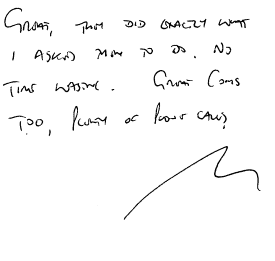 Great, they did exactly what
I asked them to do. No
time wasting. Great Coms
too, plenty of phone calls